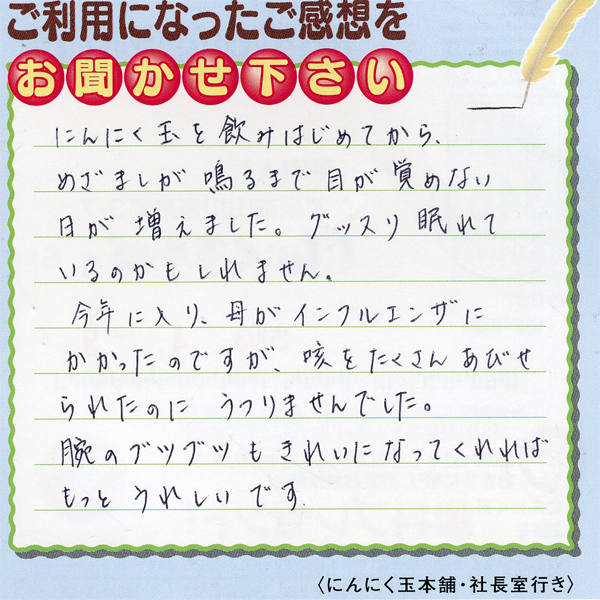 ご利用になったご感想を
お聞かせ下さい
にんにく玉を飲みはじめてから、
めざましが鳴るまで目が覚めない
日が増えました。グッスリ眠れて
いるのかもしれません。
今年に入り、母がインフルエンザに
かかったのですが、咳をたくさんあびせ
られたのにうつりませんでした。
腕のブツブツもきれいになってくれれば
もっとうれしいです.
〈にんにく玉本舗・社長室行き〉